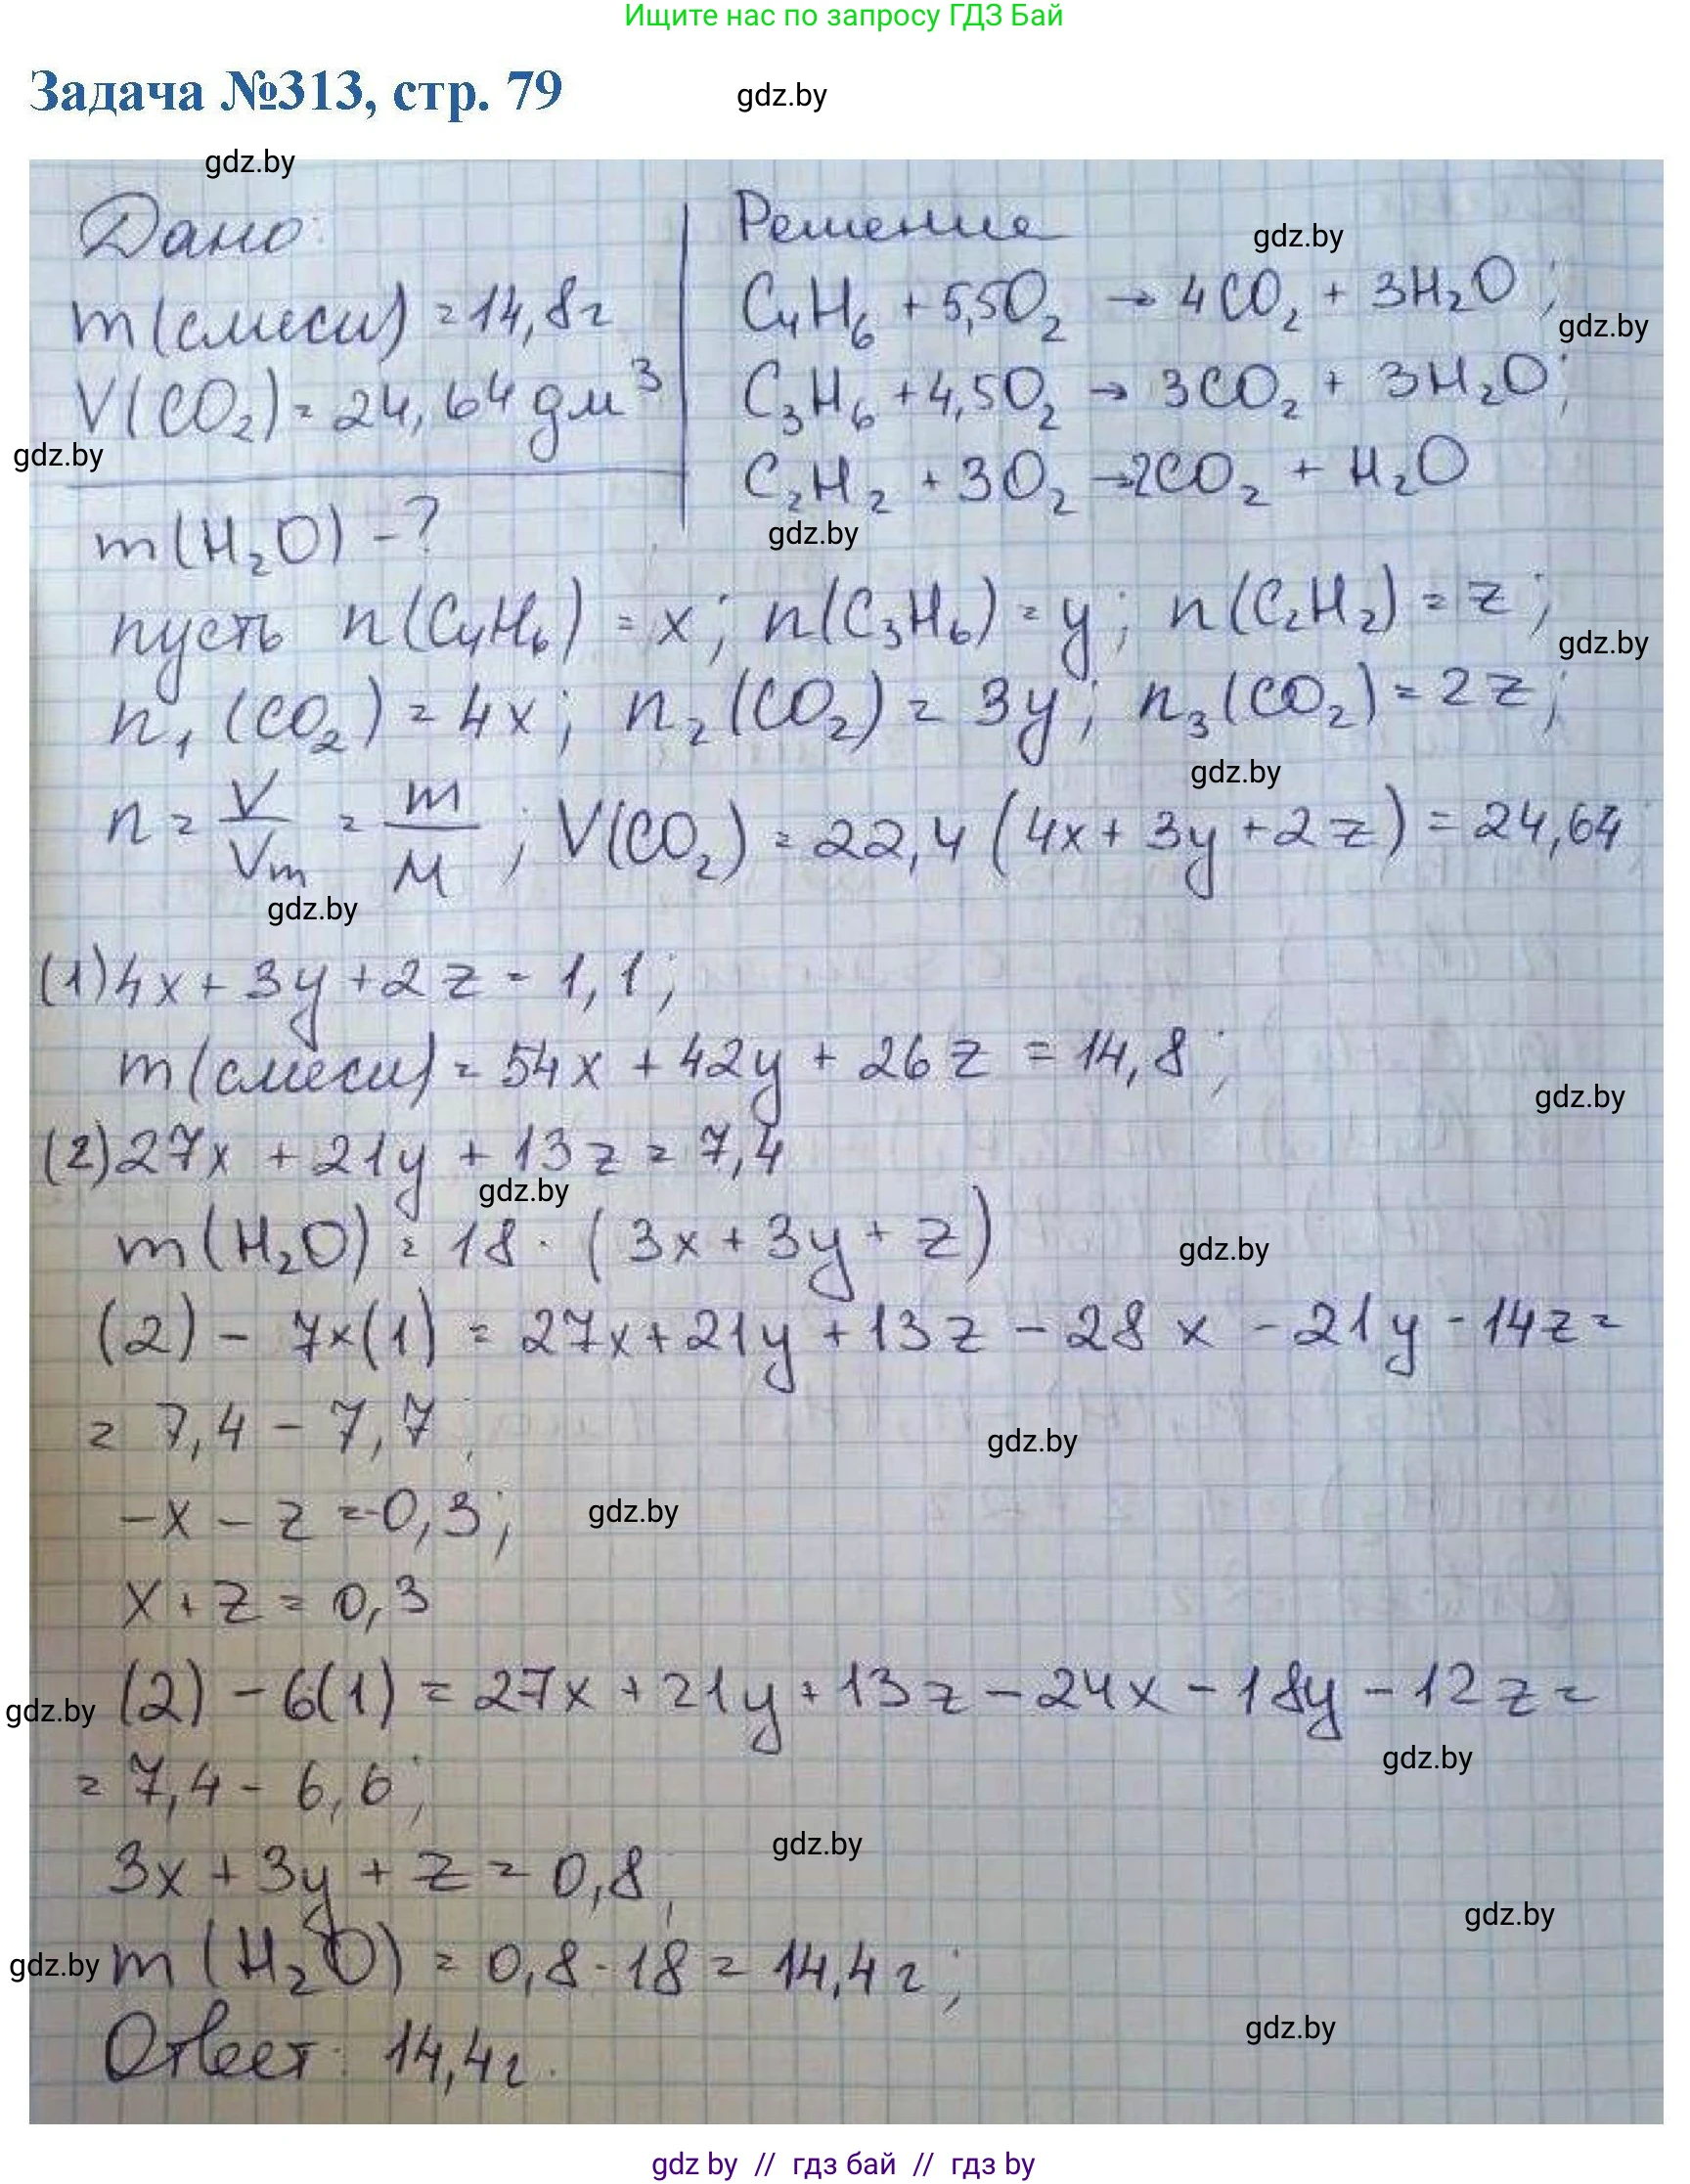 Ищите нас по запросу ГДЗ Бай
Задача №313, стр. 79
gdz.by
gdz.by
Дано:
Решение
gdz.by
m(смеси) = 14,8г
C₄H₆ + 5,5O₂ → 4CO₂ + 3H₂O;
gdz.by
V(CO₂) = 24,64 дм³
C₃H₆ + 4,5O₂ → 3CO₂ + 3H₂O;
gdz.by
C₂H₂ + 3O₂ → 2CO₂ + H₂O
m(H₂O) - ?
gdz.by
пусть n(C₄H₆) = x; n(C₃H₆) = y; n(C₂H₂) = z;
gdz.by
n₁(CO₂) = 4x; n₂(CO₂) = 3y; n₃(CO₂) = 2z;
gdz.by
n = V/Vm = m/M; V(CO₂) = 22,4 (4x + 3y + 2z) = 24,64
gdz.by
(1) 4x + 3y + 2z = 1,1;
m(смеси) = 54x + 42y + 26z = 14,8;
gdz.by
(2) 27x + 21y + 13z = 7,4
gdz.by
m(H₂O) = 18 · (3x + 3y + z)
gdz.by
(2) - 7×(1) = 27x + 21y + 13z - 28x - 21y - 14z =
= 7,4 - 7,7;
gdz.by
-x - z = -0,3;
gdz.by
x + z = 0,3
(2) - 6(1) = 27x + 21y + 13z - 24x - 18y - 12z =
gdz.by
gdz.by
= 7,4 - 6,6;
gdz.by
3x + 3y + z = 0,8;
gdz.by
m(H₂O) = 0,8 · 18 = 14,4г;
gdz.by
gdz.by
Ответ: 14,4г.
gdz by // гдз бай // гдз by